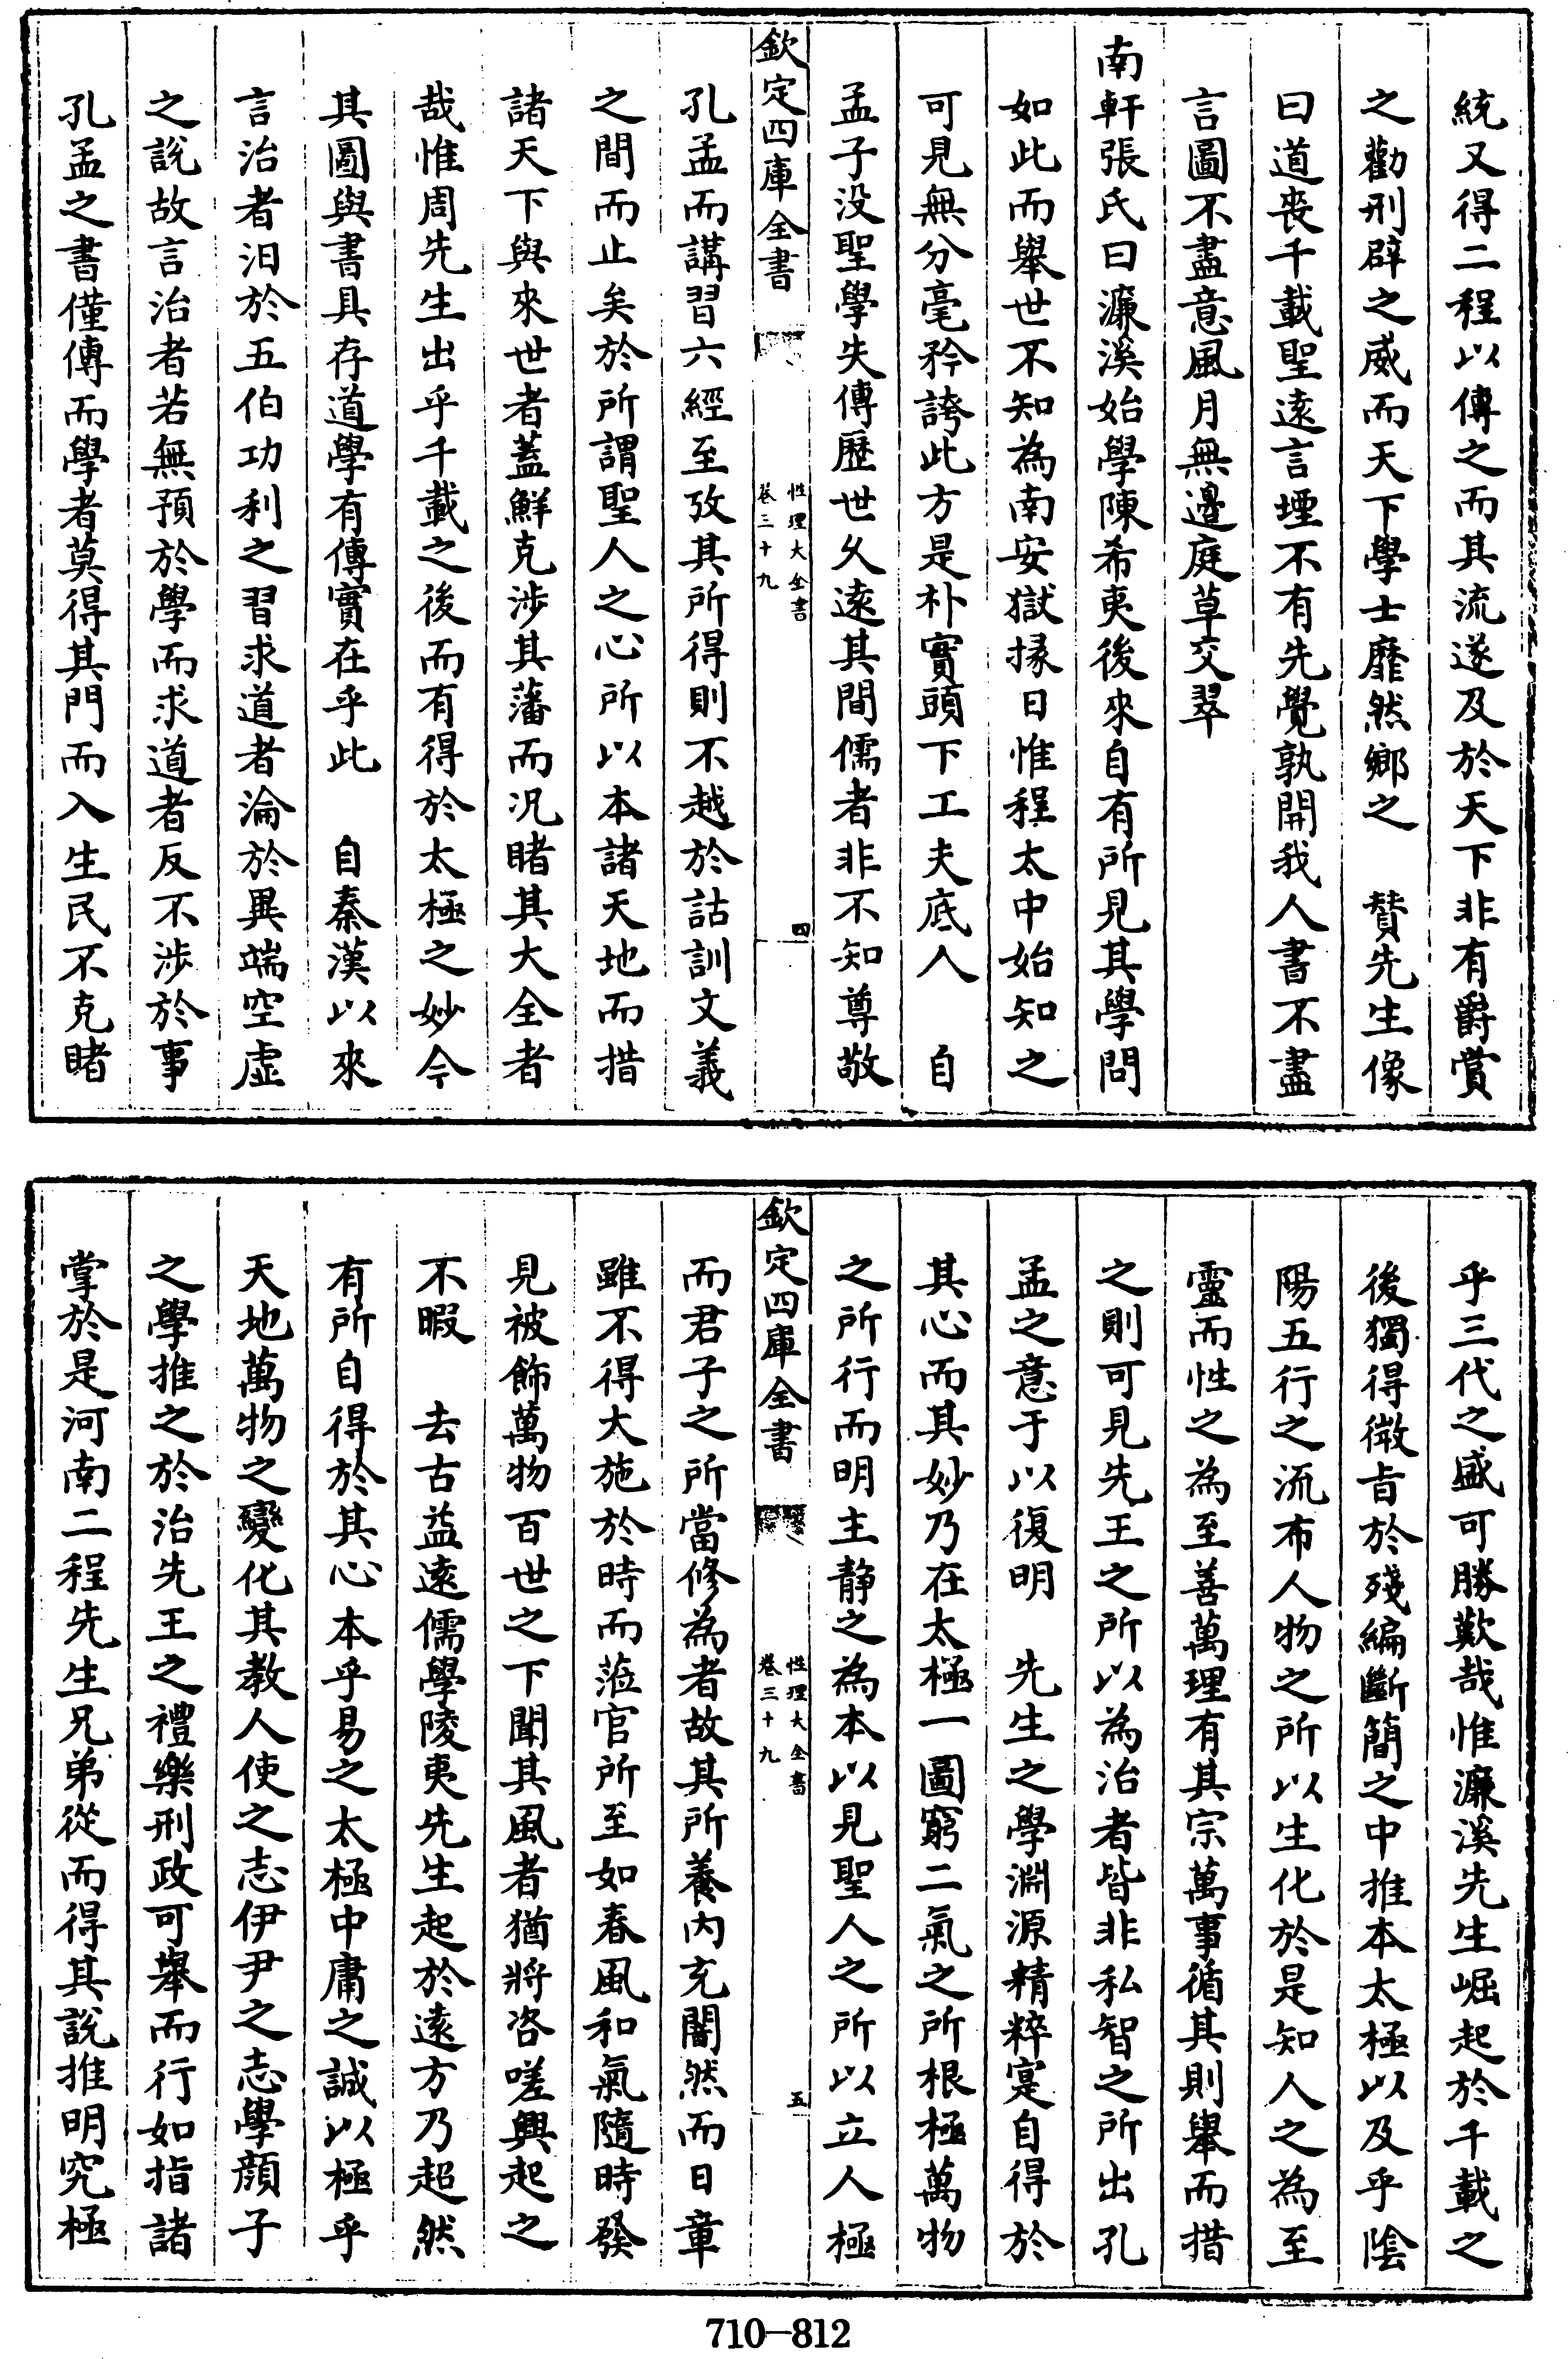 統又得二程以傳之而其流遂及於天下非有爵賞
之勸刑辟之威而天下學士靡然鄉之　賛先生像
曰道喪千載聖逺言堙不有先覺孰開我人書不盡
言圖不盡意風月無邊庭草交翠
南軒張氏曰濂溪始學陳希夷後來自有所見其學問
如此而舉世不知為南安獄掾日惟程太中始知之
可見無分毫矜誇此方是朴實頭下工夫底人　自
孟子没聖學失傳歴世乆逺其間儒者非不知尊敬
欽定四庫全書
性理大全書
卷三十九
四
孔孟而講習六經至攷其所得則不越於詁訓文義
之間而止矣於所謂聖人之心所以本諸天地而措
諸天下與來世者葢鮮克涉其藩而况睹其大全者
哉惟周先生出乎千載之後而有得於太極之妙今
其圖與書具存道學有傳實在乎此　自秦漢以來
言治者汨於五伯功利之習求道者淪於異端空虚
之說故言治者若無預於學而求道者反不涉於事
孔孟之書僅傳而學者莫得其門而入生民不克睹
乎三代之盛可勝歎哉惟濂溪先生崛起於千載之
後獨得微㫖於殘編斷簡之中推本太極以及乎隂
陽五行之流布人物之所以生化於是知人之為至
靈而性之為至善萬理有其宗萬事循其則舉而措
之則可見先王之所以為治者皆非私智之所出孔
孟之意于以復明　先生之學淵源精粹寔自得於
其心而其妙乃在太極一圖窮二氣之所根極萬物
之所行而明主静之為本以見聖人之所以立人極
欽定四庫全書
性理大全書
卷三十九
五
而君子之所當修為者故其所養内充闇然而日章
雖不得大施於時而蒞官所至如春風和氣隨時發
見被飾萬物百世之下聞其風者猶將咨嗟興起之
不暇　去古益逺儒學陵夷先生起於逺方乃超然
有所自得於其心本乎易之太極中庸之誠以極乎
天地萬物之變化其教人使之志伊尹之志學顔子
之學推之於治先王之禮樂刑政可舉而行如指諸
掌於是河南二程先生兄弟從而得其說推明究極
710-812